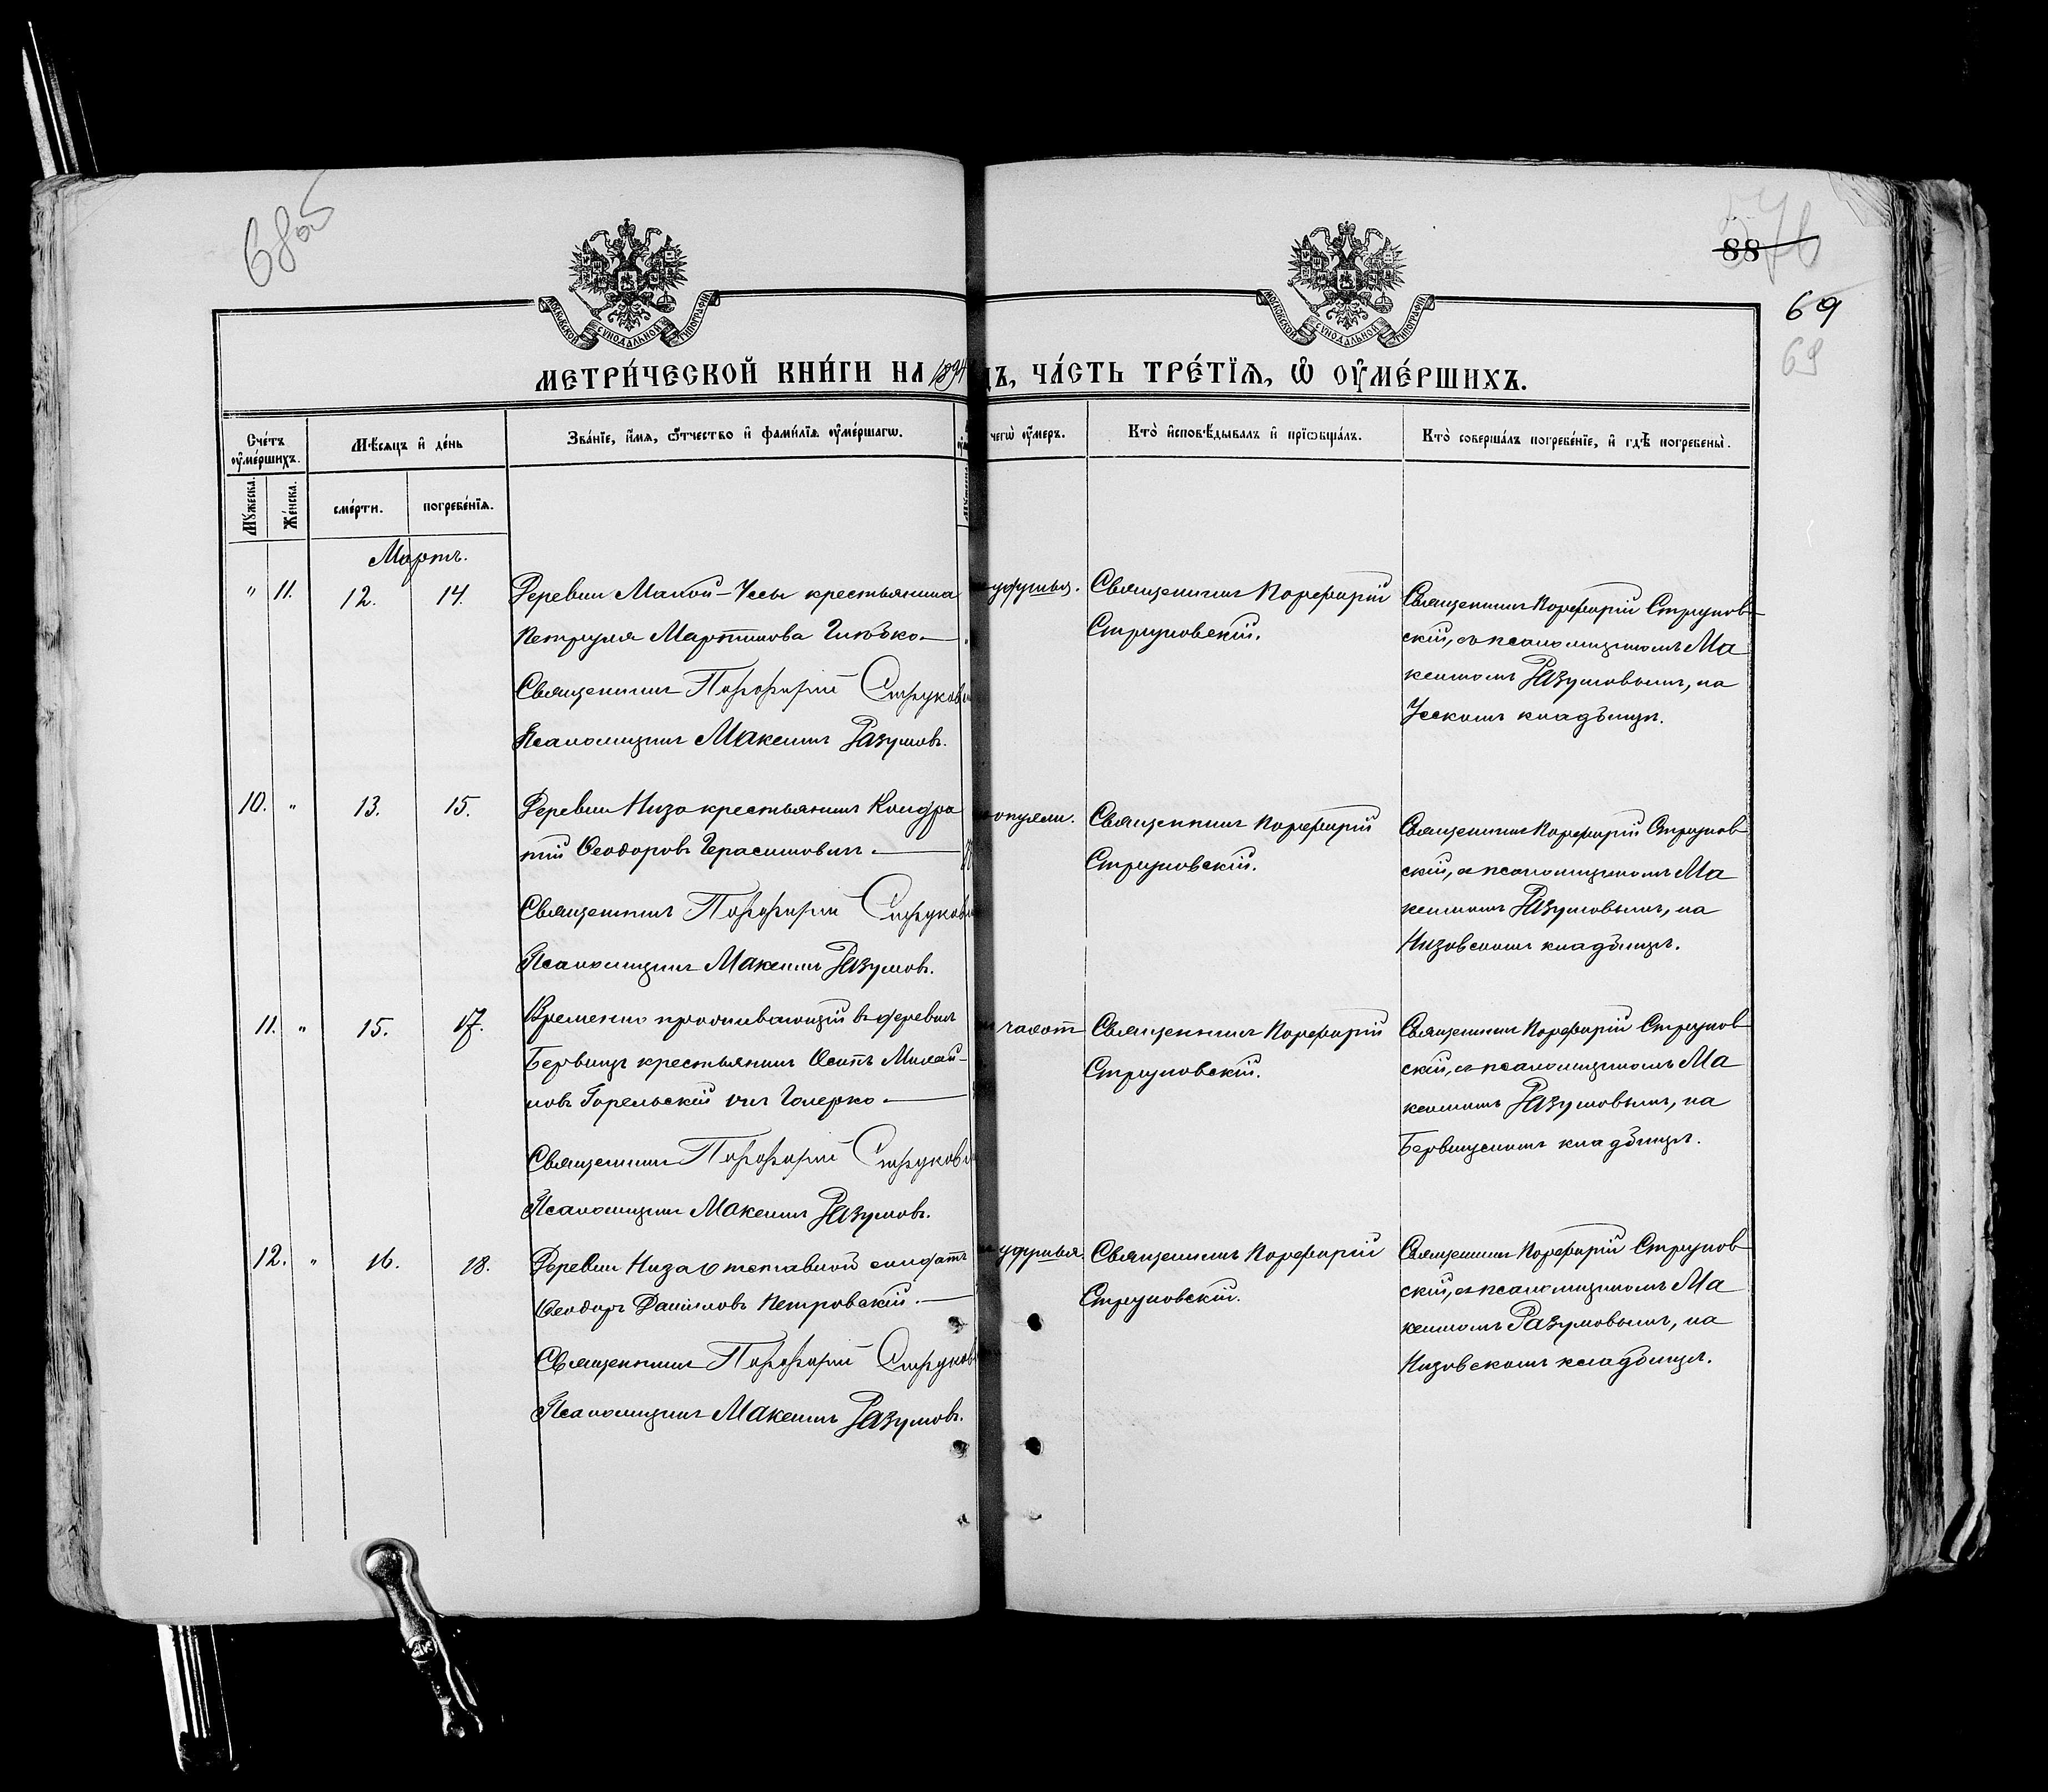 68об
88
69
69
МОСКОВСКОЙ СѴНОДАЛЬНОЙ ТИПОГРАФІИ
МОСКОВСКОЙ СѴНОДАЛЬНОЙ ТИПОГРАФІИ
МЕТРИ́ЧЕСКОЙ КНИ́ГИ НА 1894
ДЪ, ЧА́СТЬ ТРЕ́ТІѦ, Ѿ ОУ҆МЕ́РШИХЪ.
Сче́тъ оу҆ме́ршихъ.
Мѣ́сяцъ и҆ де́нь
Зва́нїе, и҆́мѧ, ѻ҆́тчество и҆ фами́лїѧ оу҆ме́ршагѡ.
чегѡ̀ оу҆́меръ.
Кто̀ и҆сповѣ́дывалъ и҆ прїѡбща́лъ.
Кто̀ соверша́лъ погребе́нїе, и҆ гдѣ̀ погребены̀.
Мꙋ́жеска.
Же́нска.
сме́рти.
погребе́нїѧ.
Мартъ.
" 11. 12. 14.
Деревни Малой-Уссы крестьянина
Петруля Мартинова
Священникъ Порфирій Струков
Псаломщикъ Максимъ Разумовъ.
Священникъ Порфирій
Струковскій.
Священникъ Порфирій Струков
скій, съ псаломщикомъ Ма
ксимомъ Разумовымъ, на
Усскомъ кладбищѣ.
10. " 13. 15.
Деревни Низа крестьянинъ Кондра
тій Ѳеодоровъ Герасимовичъ.
Священникъ Порфирій Струков
Псаломщикъ Максимъ Разумовъ.
Священникъ Порфирій
Струковскій.
Священникъ Порфирій Струков
скій, съ псаломщикомъ Ма
ксимомъ Разумовымъ, на
Низовскомъ кладбищѣ.
11. " 15. 17.
Временно проживающій въ деревнѣ
крестьянинъ Осипъ Михай-
ловъ Горельскій
Священникъ Порфирій Струков
Псаломщикъ Максимъ Разумовъ.
чахот
Священникъ Порфирій
Струковскій.
Священникъ Порфирій Струков
скій, съ псаломщикомъ Ма
ксимомъ Разумовымъ, на
кладбищѣ.
12. " 16. 18.
Деревни Низа отставной солдатъ
Ѳеодоръ Даніиловъ Петровскій.
Священникъ Порфирій Струков
Псаломщикъ Максимъ Разумовъ.
Священникъ Порфирій
Струковскій.
Священникъ Порфирій Струков
скій, съ псаломщикомъ Ма
ксимомъ Разумовымъ, на
Низовскомъ кладбищѣ.